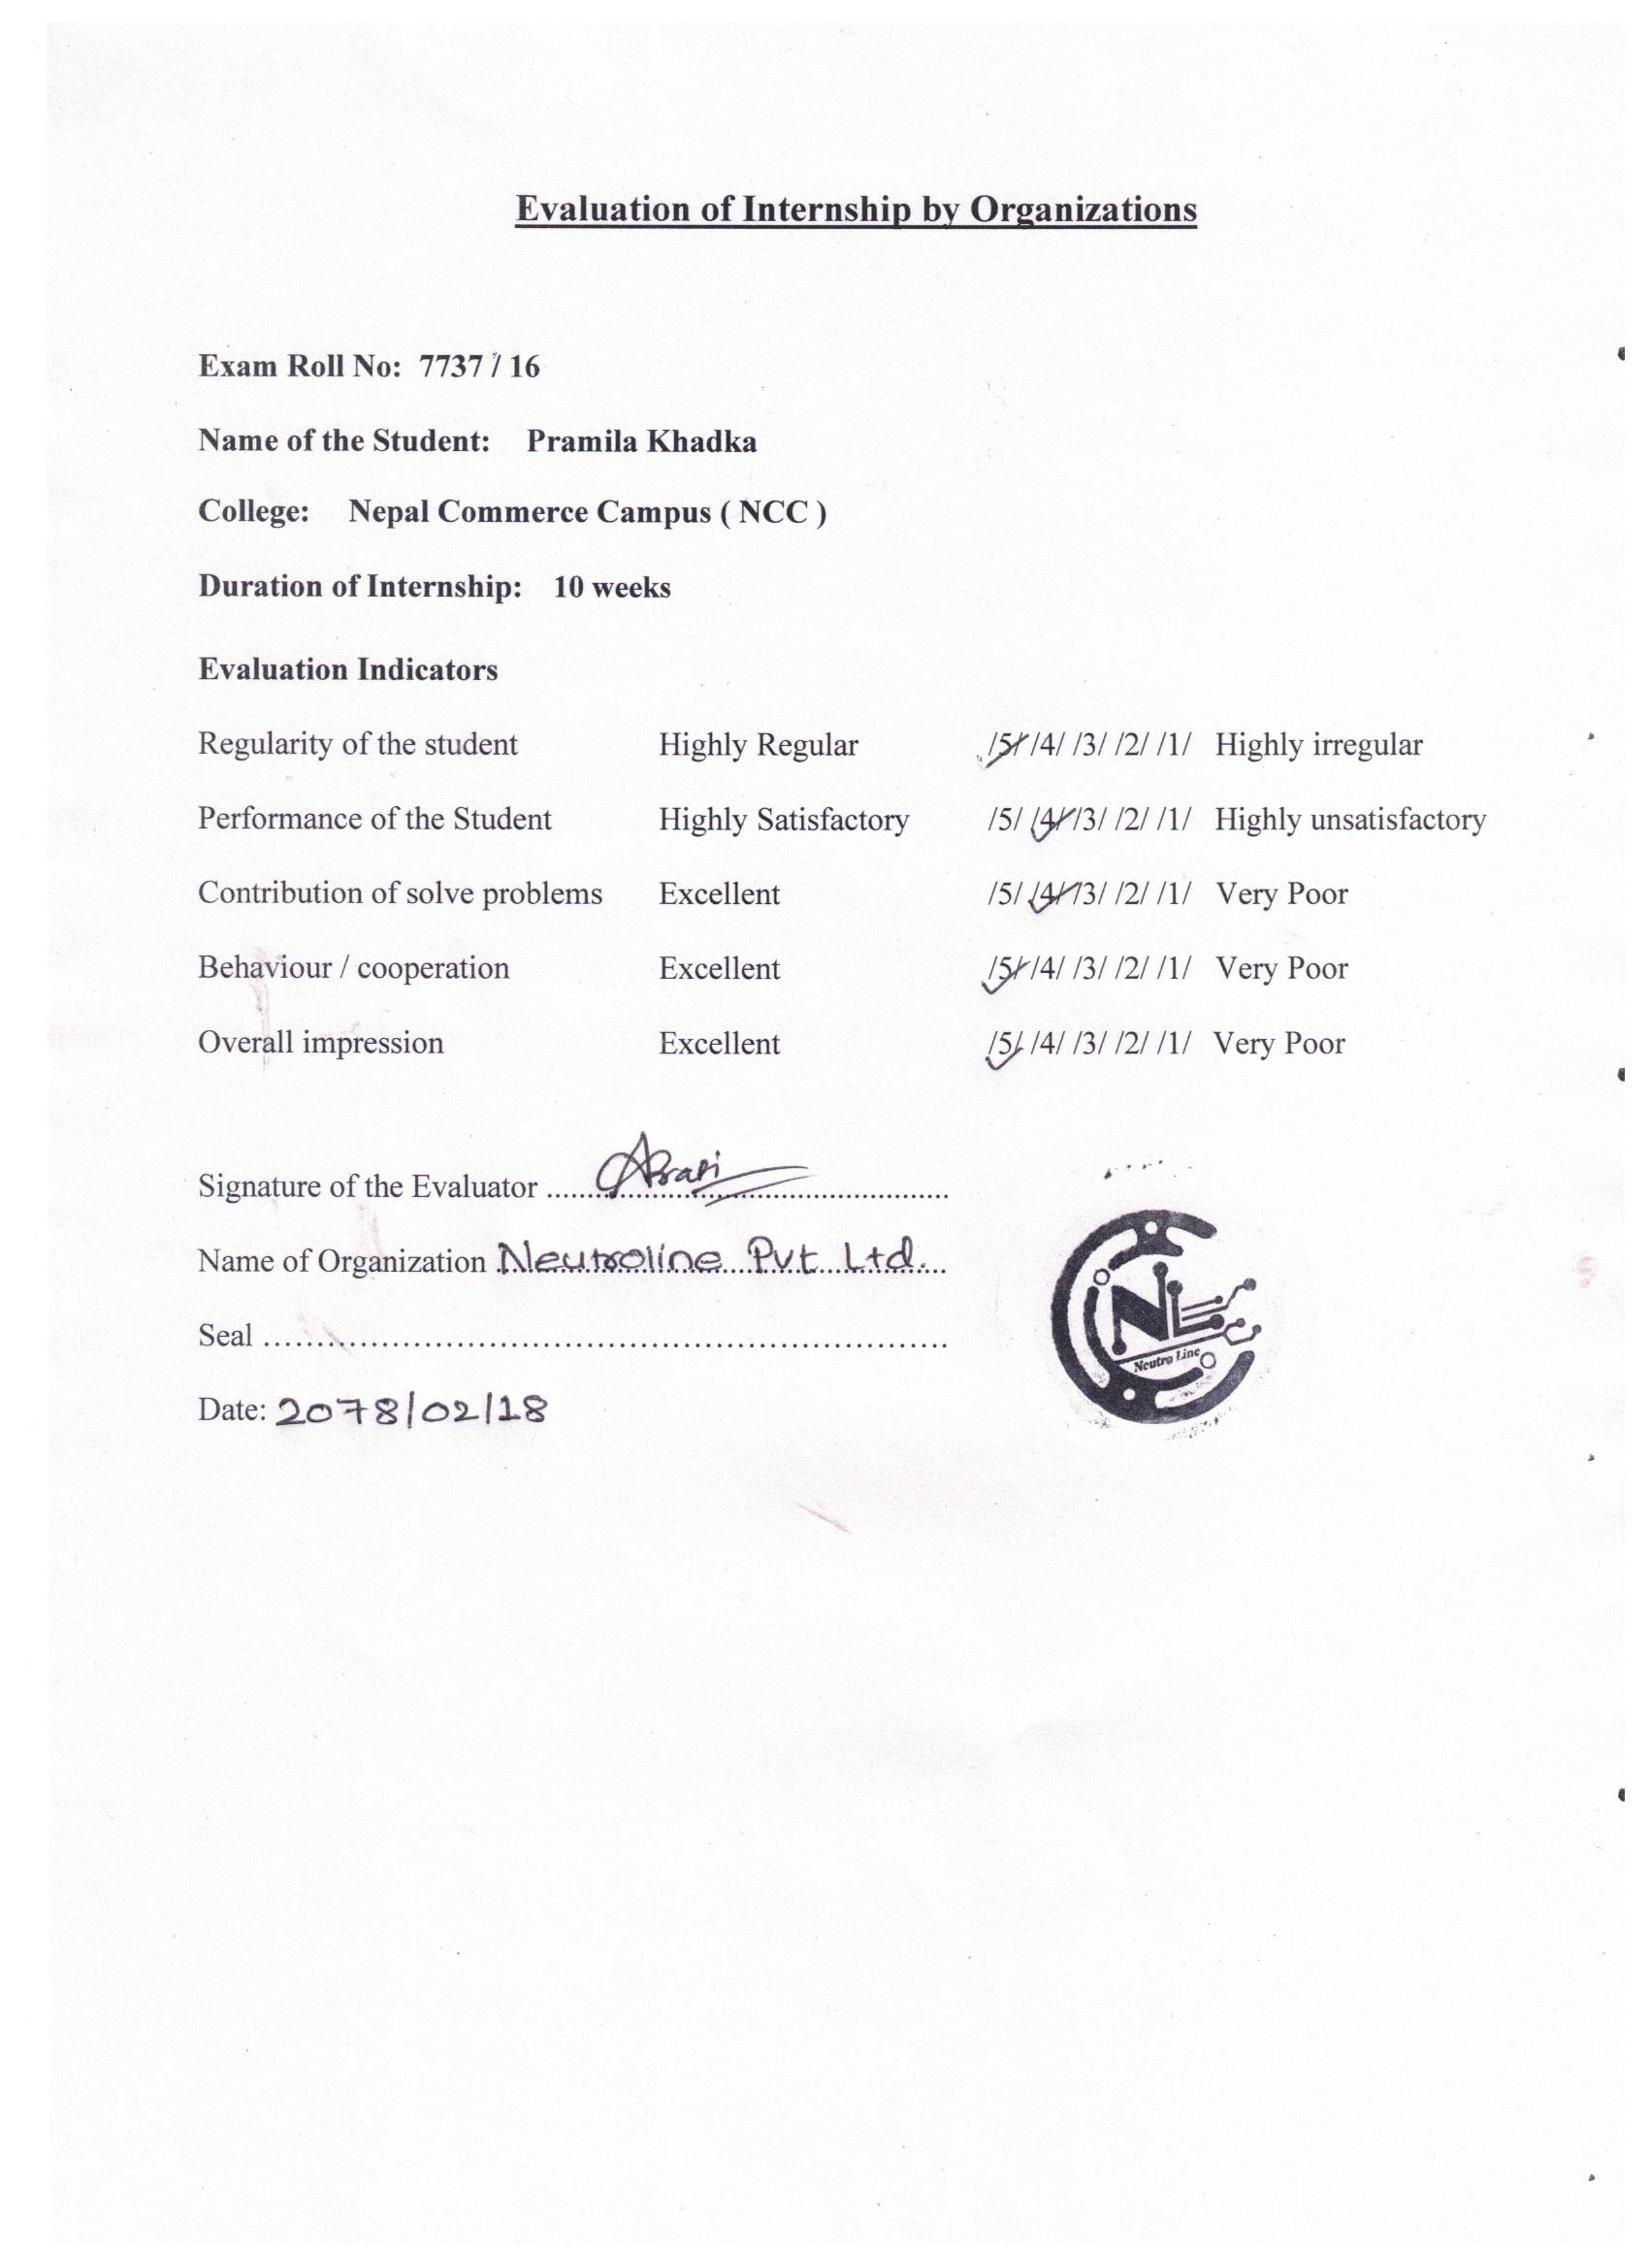 Evaluation of Internship by Organizations
Exam Roll No: 7737 / 16
Name of the Student: Pramila Khadka
College: Nepal Commerce Campus ( NCC )
Duration of Internship: 10 weeks
Evaluation Indicators
Regularity of the student Highly Regular /5/ /4/ /3/ /2/ /1/ Highly irregular
Performance of the Student Highly Satisfactory /5/ /4/ /3/ /2/ /1/ Highly unsatisfactory
Contribution of solve problems Excellent /5/ /4/ /3/ /2/ /1/ Very Poor
Behaviour / cooperation Excellent /5/ /4/ /3/ /2/ /1/ Very Poor
Overall impression Excellent /5/ /4/ /3/ /2/ /1/ Very Poor
Signature of the Evaluator ................................................
Name of Organization Neutroline Pvt. Ltd.
Seal ................................................................
Date: 2078/02/18
NL
Neutro Line